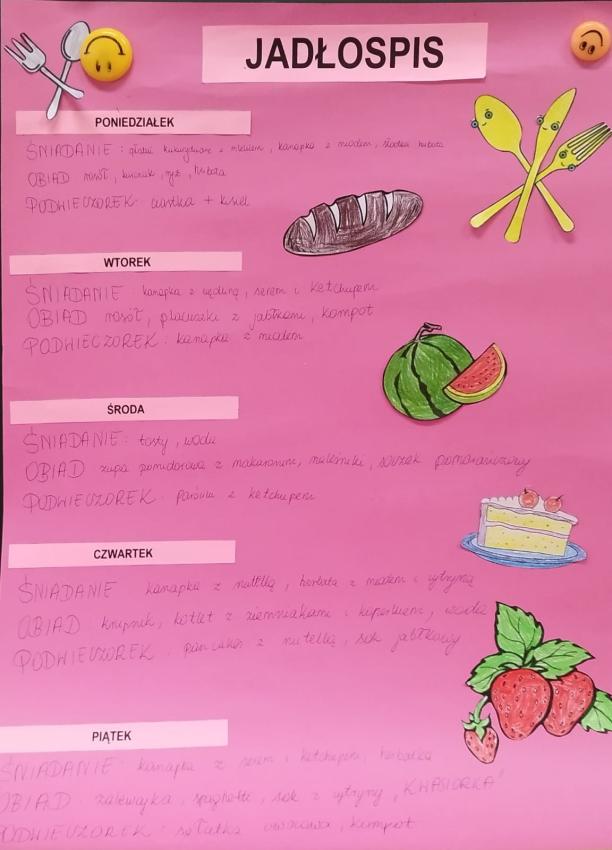 JADŁOSPIS
PONIEDZIAŁEK
ŚNIADANIE: płatki kukurydziane z mlekiem, kanapka z miodem, słodka herbata
OBIAD rosół, kurczak, ryż, herbata
PODWIECZOREK: ciastka + kisiel
WTOREK
ŚNIADANIE: kanapka z wędliną, serem i ketchupem
OBIAD rosół, placuszki z jabłkami, kompot
PODWIECZOREK: kanapka z miodem
ŚRODA
ŚNIADANIE: tosty, woda
OBIAD zupa pomidorowa z makaronem, naleśniki, soczek pomarańczowy
PODWIECZOREK: parówki z ketchupem
CZWARTEK
ŚNIADANIE kanapka z nutellą, herbata z miodem i cytryną
OBIAD: krupnik, kotlet z ziemniakami i koperkiem, woda
PODWIECZOREK: pancakes z nutellą, sok jabłkowy
PIĄTEK
ŚNIADANIE: kanapka z serem i ketchupem, herbatka
OBIAD: zalewajka, spaghetti, sok z cytryny „KWASIORKA"
PODWIECZOREK: sałatka owocowa, kompot